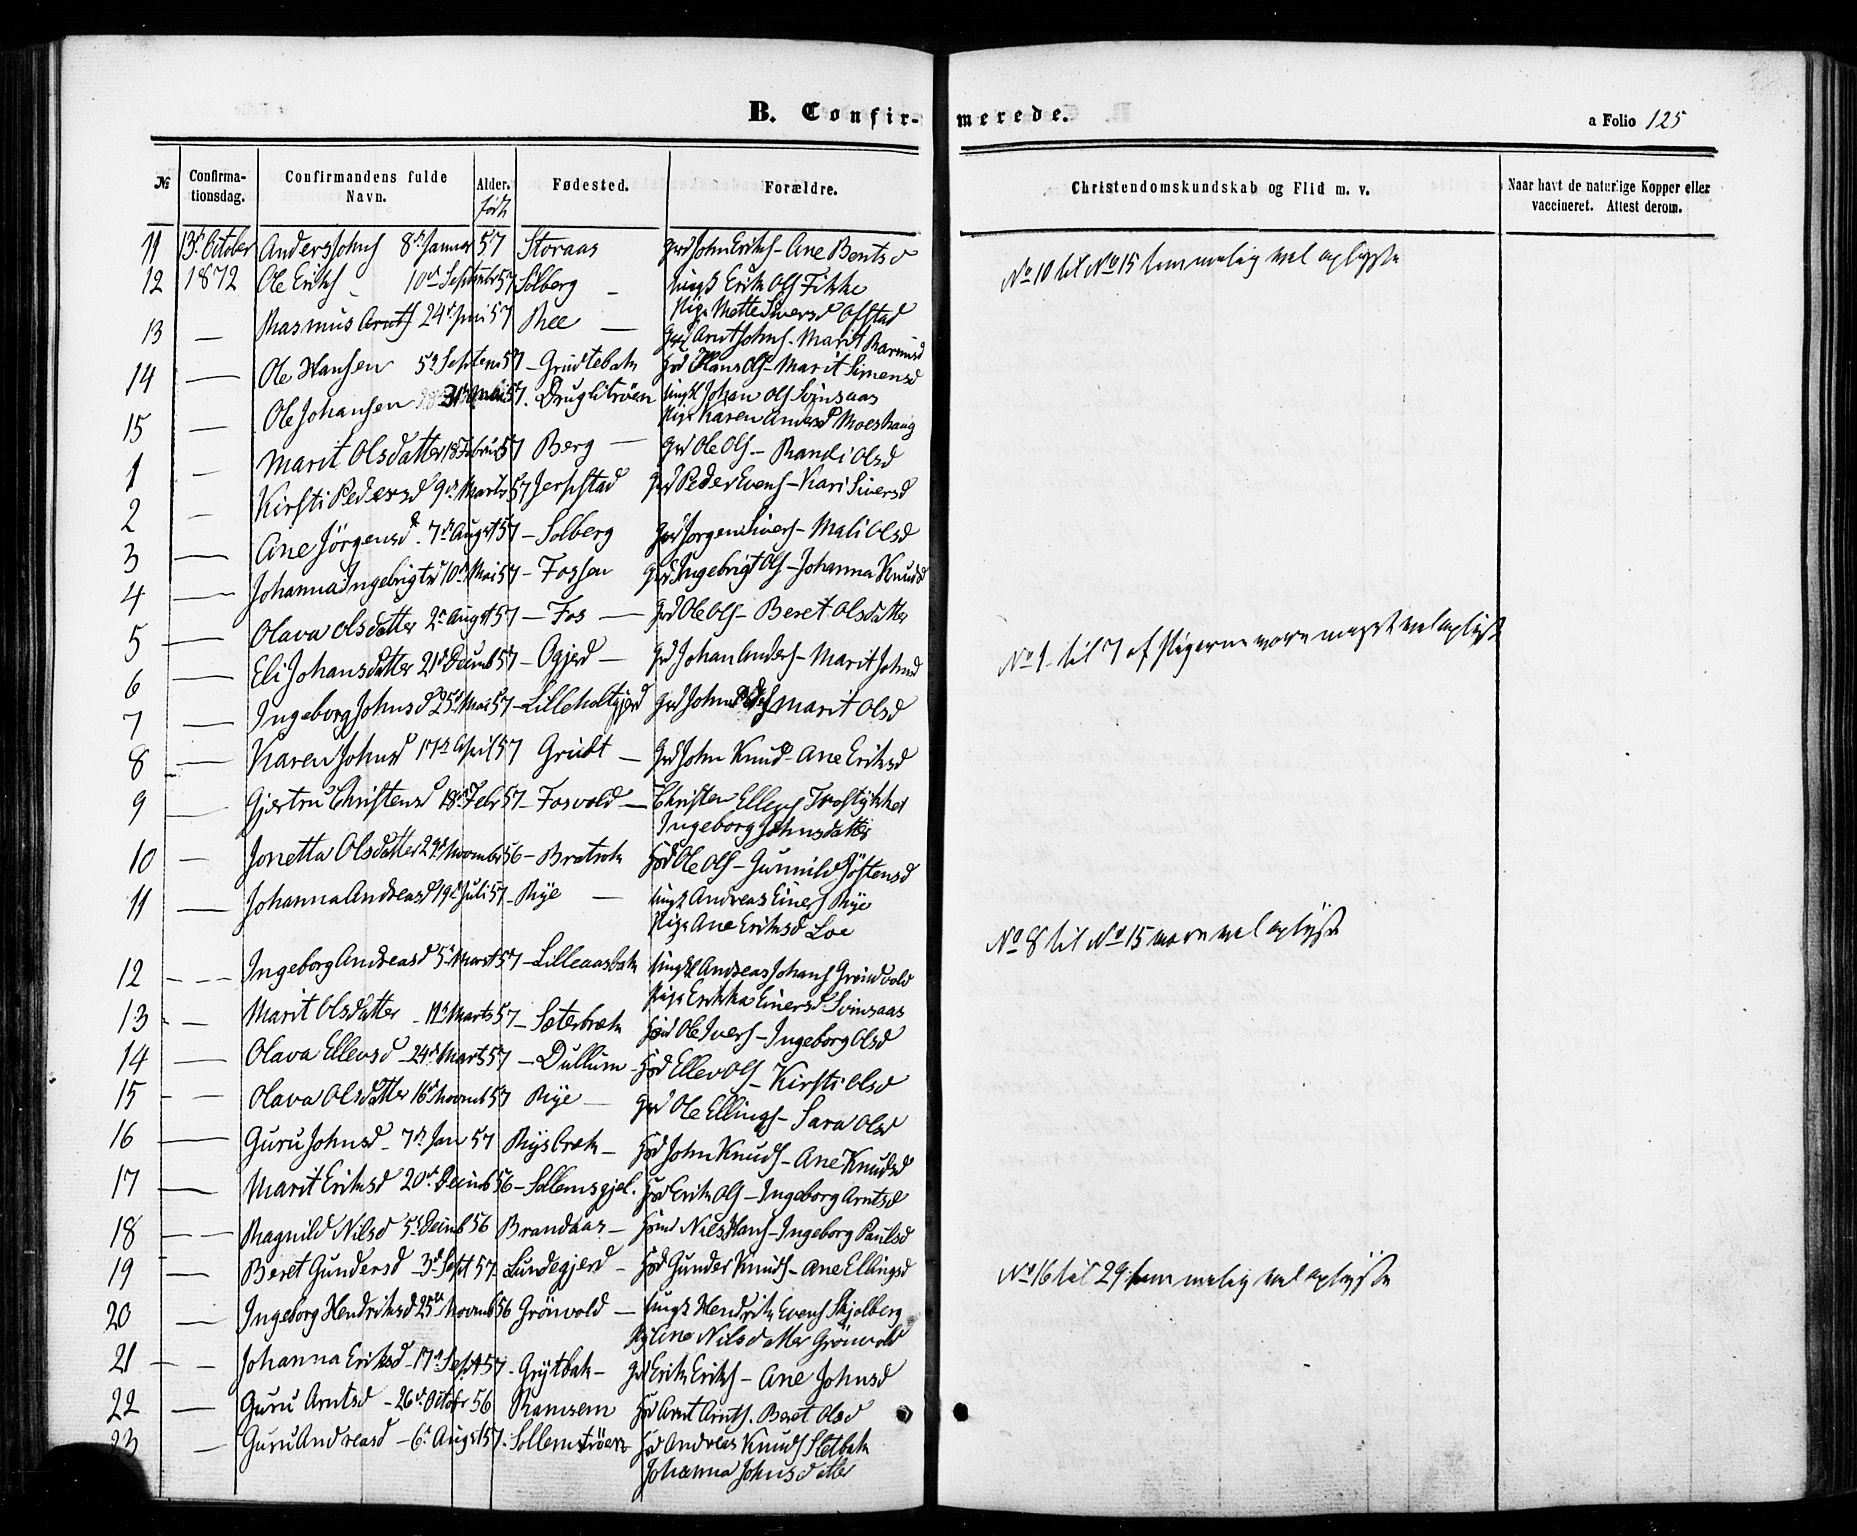 B. Confir-
№ Confirma-tionsdag. Confirmandens fulde Navn. Alder. født Fødested. Forældre.
11 13de October Anders Johns 8de Januar 57 Storaas Grd John Eriks - Ane Bentsd
12 1872 Ole Eriks 10de Septembr 57 Solberg - Ungk Erik Ols Fikke
Pige Mette Siversd Ofstad
13 — Rasmus Arnts 24de Juni 57 Ree — Grd Arnt Johns. Marit
14 — Ole Hansen 5te Septem 57 - Grudtebak Hsd Hans Ols - Marit Simensd
15 — Ole Johansen 31te Mai 57. Druglitrøen Ungk Johan Ols Svinsaas
Pige Karen Moeshaug
1 — Marit Olsdatter 18de Februar 57 Berg — Grd Ole Ols - Randi Olsd
2 — Kirsti Pedersd 9de Marts 57 Jerpstad Grd Peder Evens - Kari Siversd
3 — Ane Jörgensd. 7de August 57 - Solberg Grd Jorgen Sivers - Mali Olsd
4 — Johanna Ingebrigtsd 10de Mai 57 - Fossen Grd Ingebrigt Ols - Johanna Knudsd
5 — Olava Olsdatter 2de August 57 - Fos — Grd Ole Ols - Beret Olsdatter
6 — Eli Johansdatter 21de Decemb 57 - Ogjerd — Grd Johan Anders - Marit Johnsd
7 — Ingeborg Johnsd 25de Mai 57 - Lilleholtgjerd Grd John Marit Olsd
8 — Karen Johnsd 17de April 57 Grudt — Grd John Knuds - Ane Eriksd
9 — Gjertru Christensd 18de Febr 57 - Fosvold — Christen Ellevs
Ingeborg Johnsdatter
10 — Jonetta Olsdatter 29de Novembr 56 - Hsd Ole Ols - Gunnild Jöstensd
11 — Johanna Andreasd 19de Juli 57 - Rye — Ungk Andreas Einers Rye
Pige Ane Eriksd Loe
12 — Ingeborg Andreasd 5te Marts 57 - Lilleaasbak Ungk Andreas Johans Grönvold
Pige Erikka Einersd Svinsaas
13 — Marit Olsdatter - 11te Marts 57 - Sæterbræk Hsd Ole Ivers - Ingeborg Olsd
14 — Olava Ellevsd - 24de Marts 57 - Dullum - Hsd Ellev Ols - Kirsti Olsd
15 — Olava Olsdatter 16de Novemb 57 Rye — Grd Ole Ellings - Sara Olsd
16 — Guru Johnsd - 7de Jan 57 Rysbræk - Hsd John Knuds - Ane Knudsd
17 — Marit Eriksd 20de Decemb 56 - Sollemsgjel. Hsd Erik Ols - Ingeborg Arntsd
18 — Ragnild Nilsd 5te Decemb 56 Brandaas - Nils Hans - Ingeborg Paulsd
19 — Beret Gundersd - 3de Sept 57 - Lundegjerd - Hsd Gunder Knuds - Ane Ellingsd
20 — Ingeborg Hendriksd 25de Novemb 56 Grönvold - Ungk Hendrik Evens Skjolberg
Pig Ane Nilsdatter Grönvold
21 — Johanna Eriksd - 17de Sept 57 - Grytbak - Grd Erik Eriks - Ane Johnsd
22 — Guru Arntsd - 26de Octobr 56 Ramsem Hsd Arnt Arnts. Beret Olsd
23 — Guru Andreasd - 6te August 57. Sollemströen Hsd Andreas Knuds Sletbak
Johanna Johnsdatter
merede.
a Folio 125
Christendomskundskab og Flid m. v. Naar havt de naturlige Kopper eller
vaccineret. Attest derom.
No 10 til No 15 temmelig vel oplyste
No 1 til 7 af Pigerne vare meget vel oplyst
No 8 til No 15 vare vel oplyste
No 16 til 29 temmelig vel oplyste